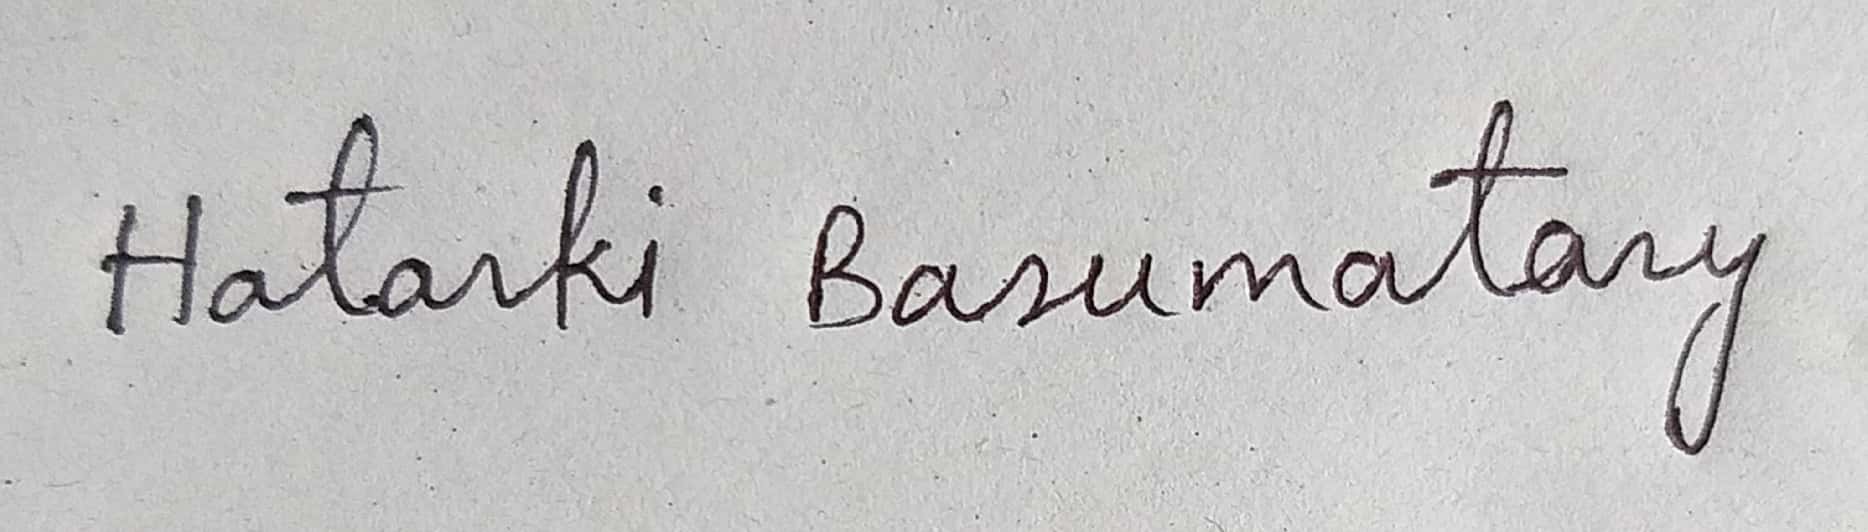 Hatarki Basumatary